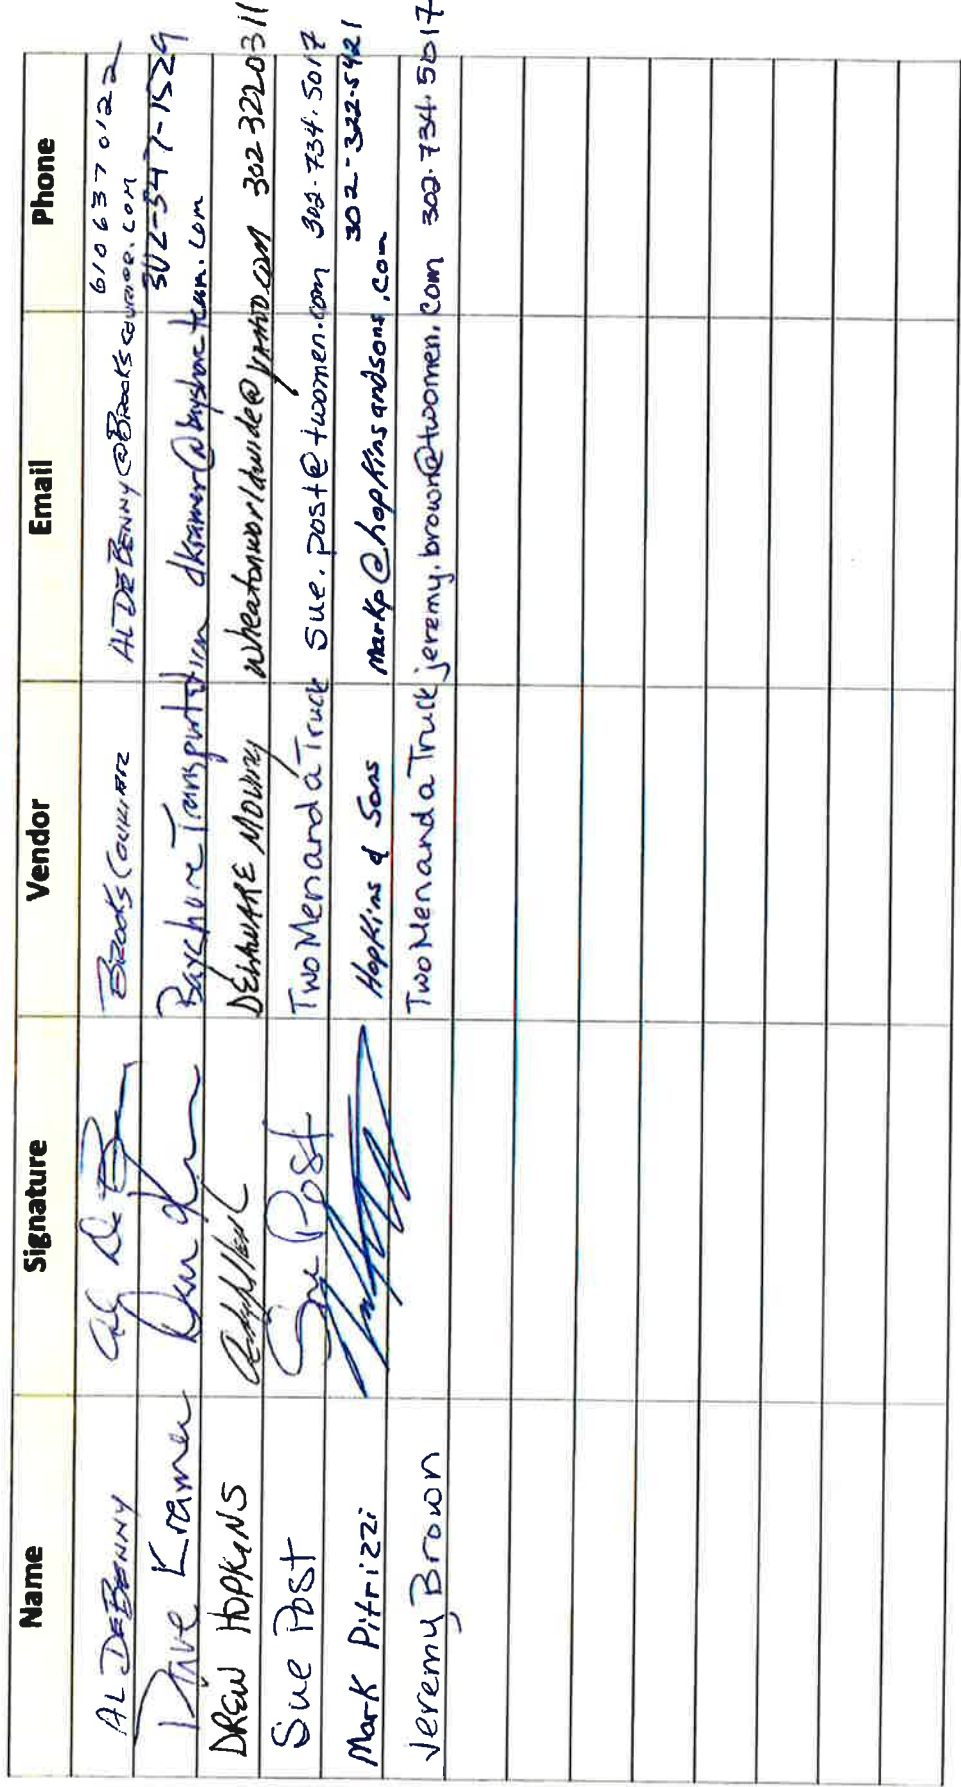 Name Signature Vendor Email Phone
AL DEBENNY Al De B BROOKS COURIER ALDEBENNY@BROOKSCOURIER.COM 6106370122
Dave Kramer Bayshore Transportation dkramer@bayshoreteam.com 302-547-1529
DREW HOPKINS DELAWARE MOVING wheatonworldwide@YAHOO.COM 302 3220311
Sue Post Sue Post Two Men and a Truck Sue.post@twomen.com 302-734.5017
Mark Pitrizzi Hopkins & Sons markp@hopkinsandsons.com 302-322-5421
Jeremy Brown Two Men and a Truck jeremy.brown@twomen.com 302.734.5017